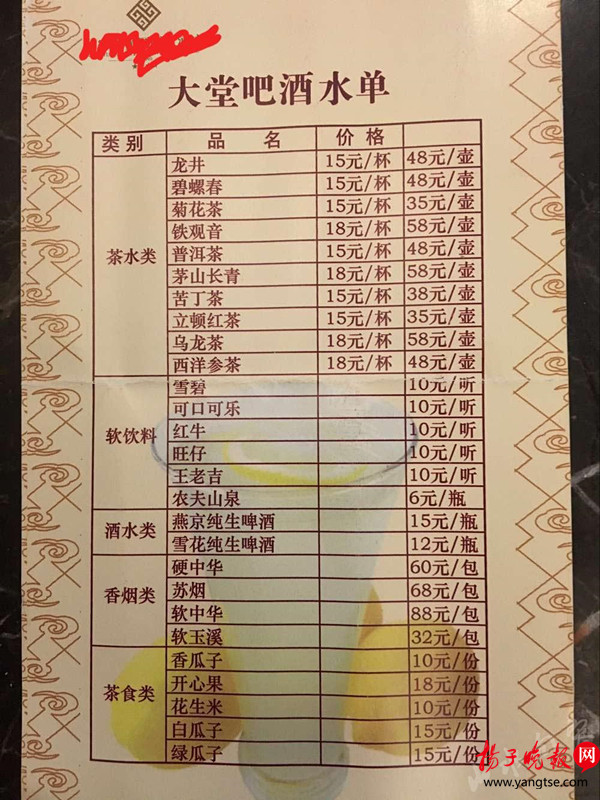 大堂吧酒水单
类别 品名 价格
茶水类
龙井 15元/杯 48元/壶
碧螺春 15元/杯 48元/壶
菊花茶 15元/杯 35元/壶
铁观音 18元/杯 58元/壶
普洱茶 15元/杯 48元/壶
茅山长青 18元/杯 58元/壶
苦丁茶 15元/杯 38元/壶
立顿红茶 15元/杯 35元/壶
乌龙茶 18元/杯 58元/壶
西洋参茶 18元/杯 48元/壶
软饮料
雪碧 10元/听
可口可乐 10元/听
红牛 10元/听
旺仔 10元/听
王老吉 10元/听
农夫山泉 6元/瓶
酒水类
燕京纯生啤酒 15元/瓶
雪花纯生啤酒 12元/瓶
香烟类
硬中华 60元/包
苏烟 68元/包
软中华 88元/包
软玉溪 32元/包
茶食类
香瓜子 10元/份
开心果 18元/份
花生米 10元/份
白瓜子 15元/份
绿瓜子 15元/份
扬子晚报网
www.yangtse.com